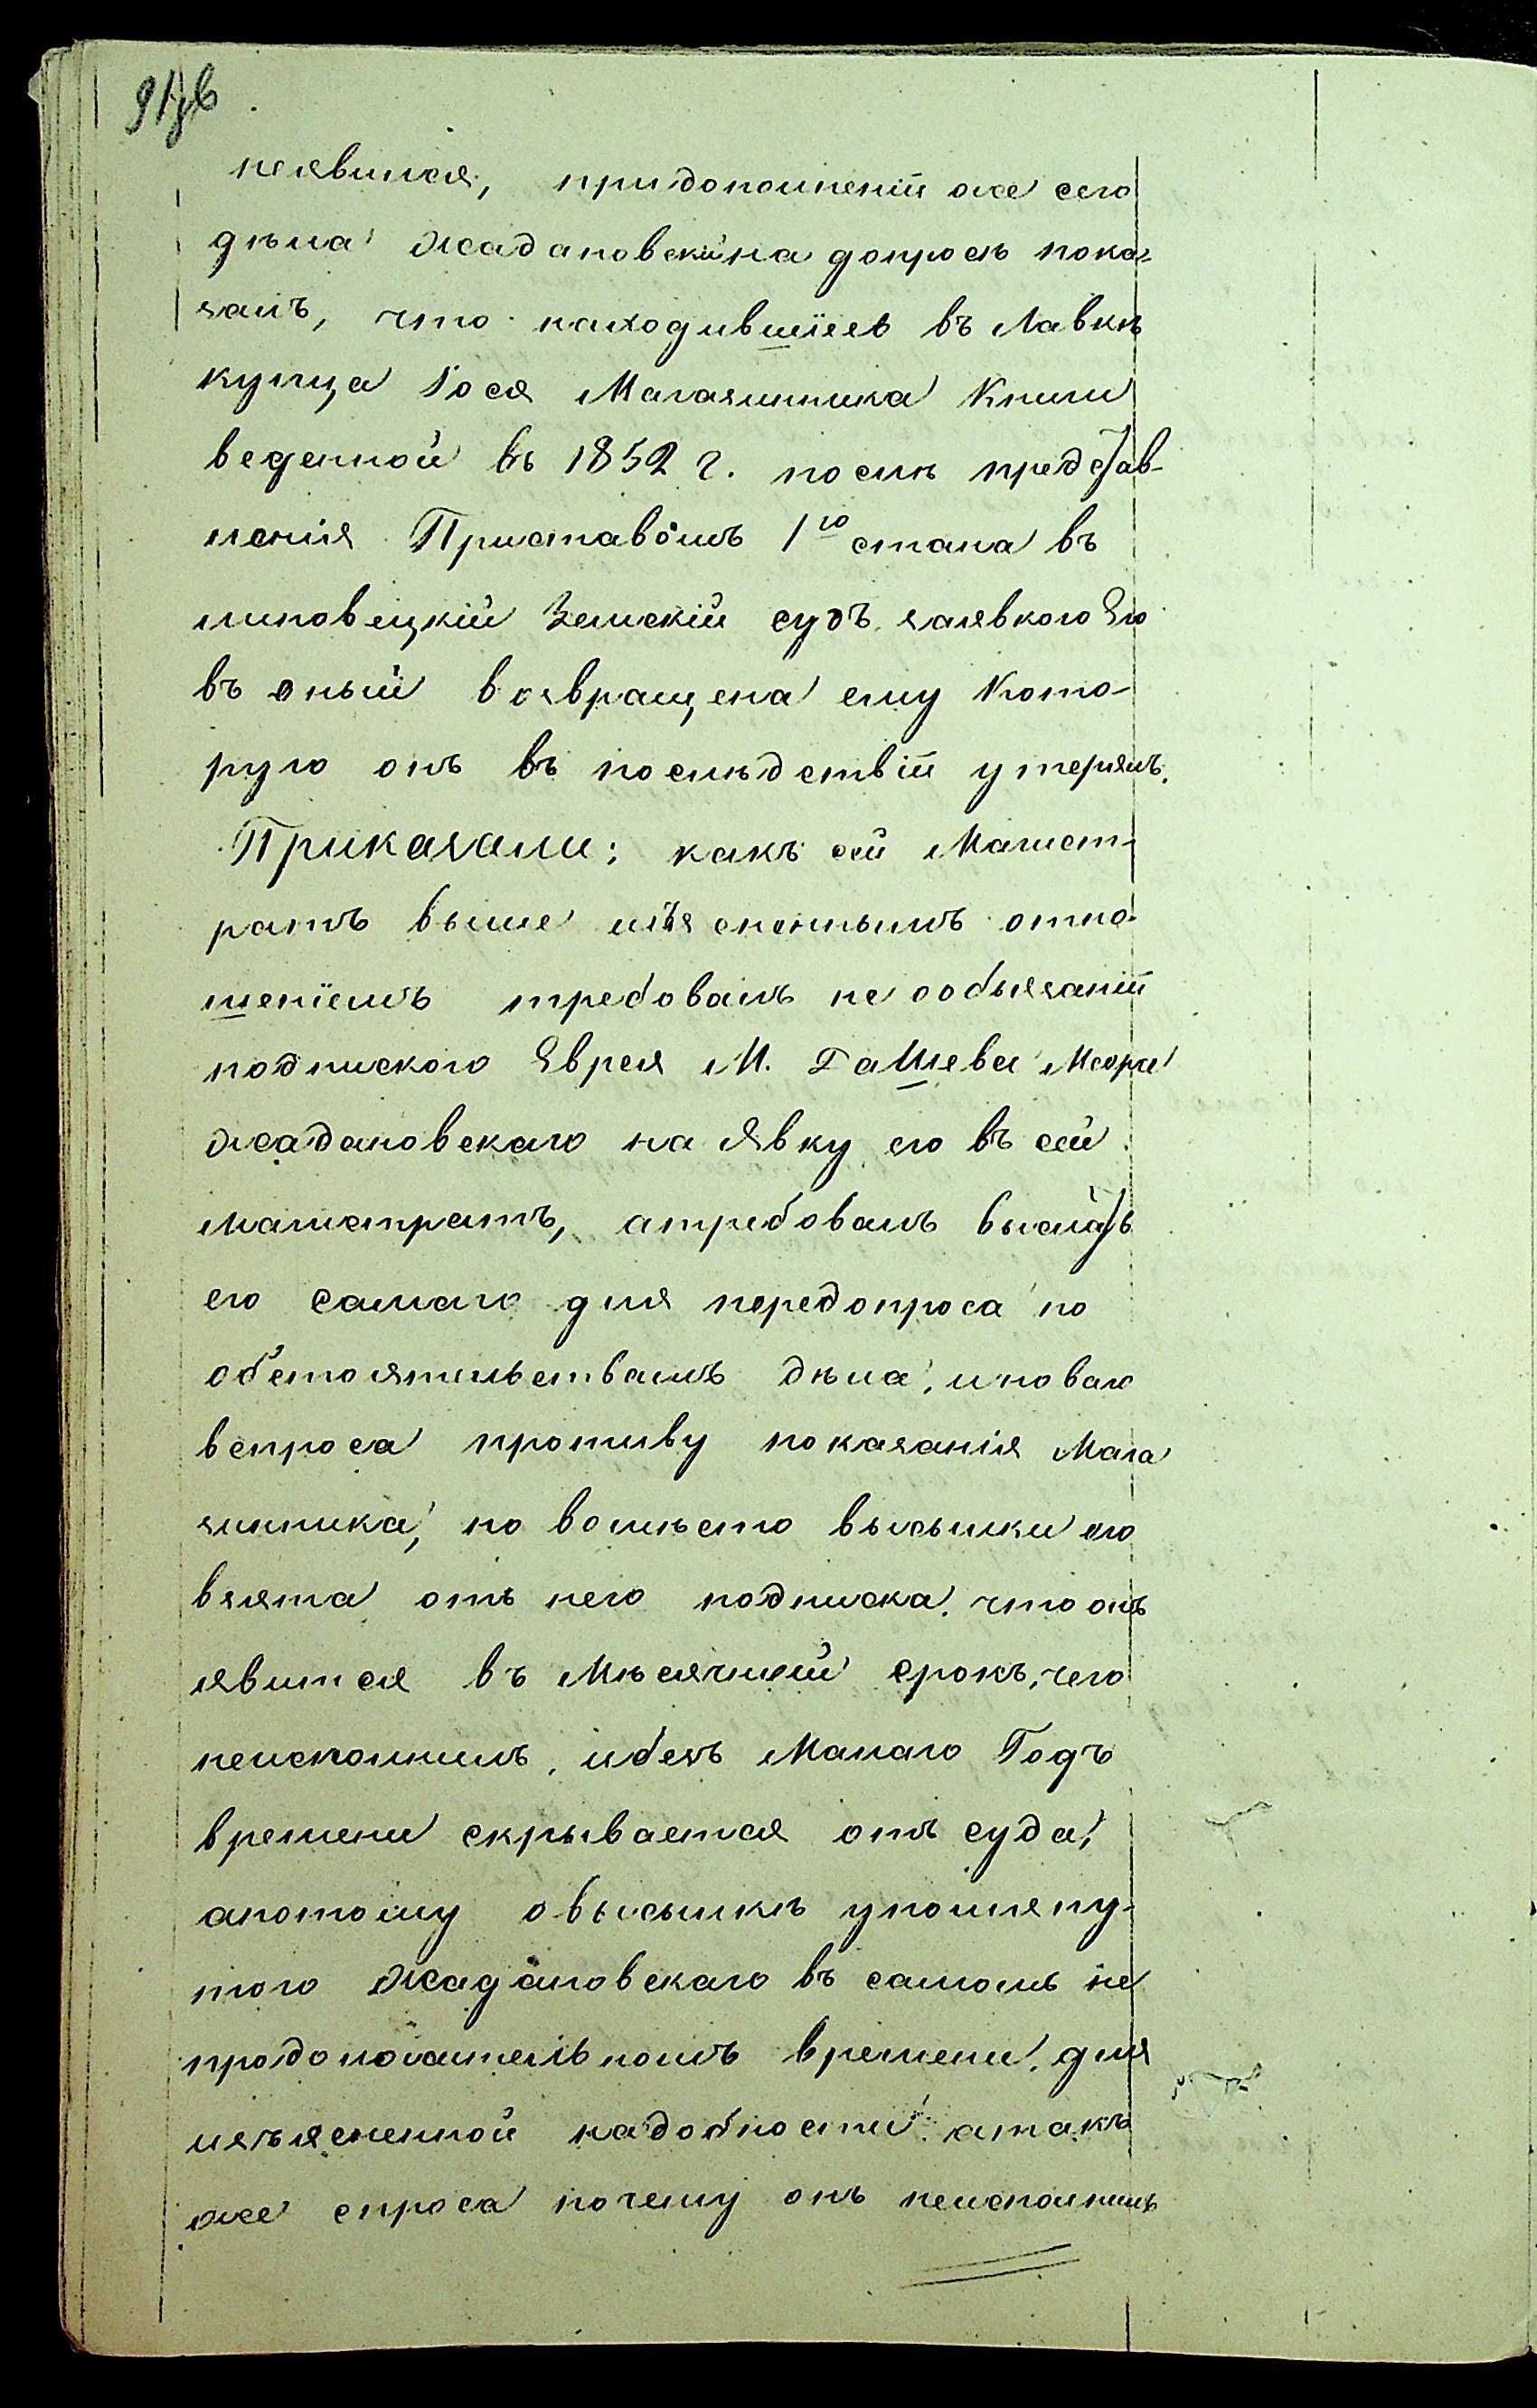 неявился, придополненіи же сего
дѣла Жадановскій на допросѣ пока-
залъ, что находившіеся въ Лавкѣ
купца Іося Магазинника Книги
веденной въ 1852 г. послѣ представ-
ленія Приставомъ 1го стана въ
липовецкій Земскій судъ заявкою Его
въ оный возвращена ему Кото-
рую онъ въ послѣдствіи утерялъ.
Приказали: какъ сей Магист-
ратъ выше изъясненнымъ отно-
шеніемъ требовалъ неообязаніи
подпискою Еврея М. Дашева Меера
Жадановскаго на явку его въ сей
магистратъ, атребовалъ выслать
его самаго для передопроса по
обстоятельствамъ дѣла, иноваго
вспроса противу показанія Мага
зинника, но вомѣсто высылки его
взята отъ него подписка, что онъ
явится въ Мѣсячный срокъ, чего
неисполнилъ, ибезъ Малаго Годъ
времени скрывается отъ суда,
апотому овысылкѣ упомяну-
того Жадановскаго въ самомъ не
продолжательномъ времени, для
изъясненной надобности атакъ
же спроса почему онъ неисполнилъ